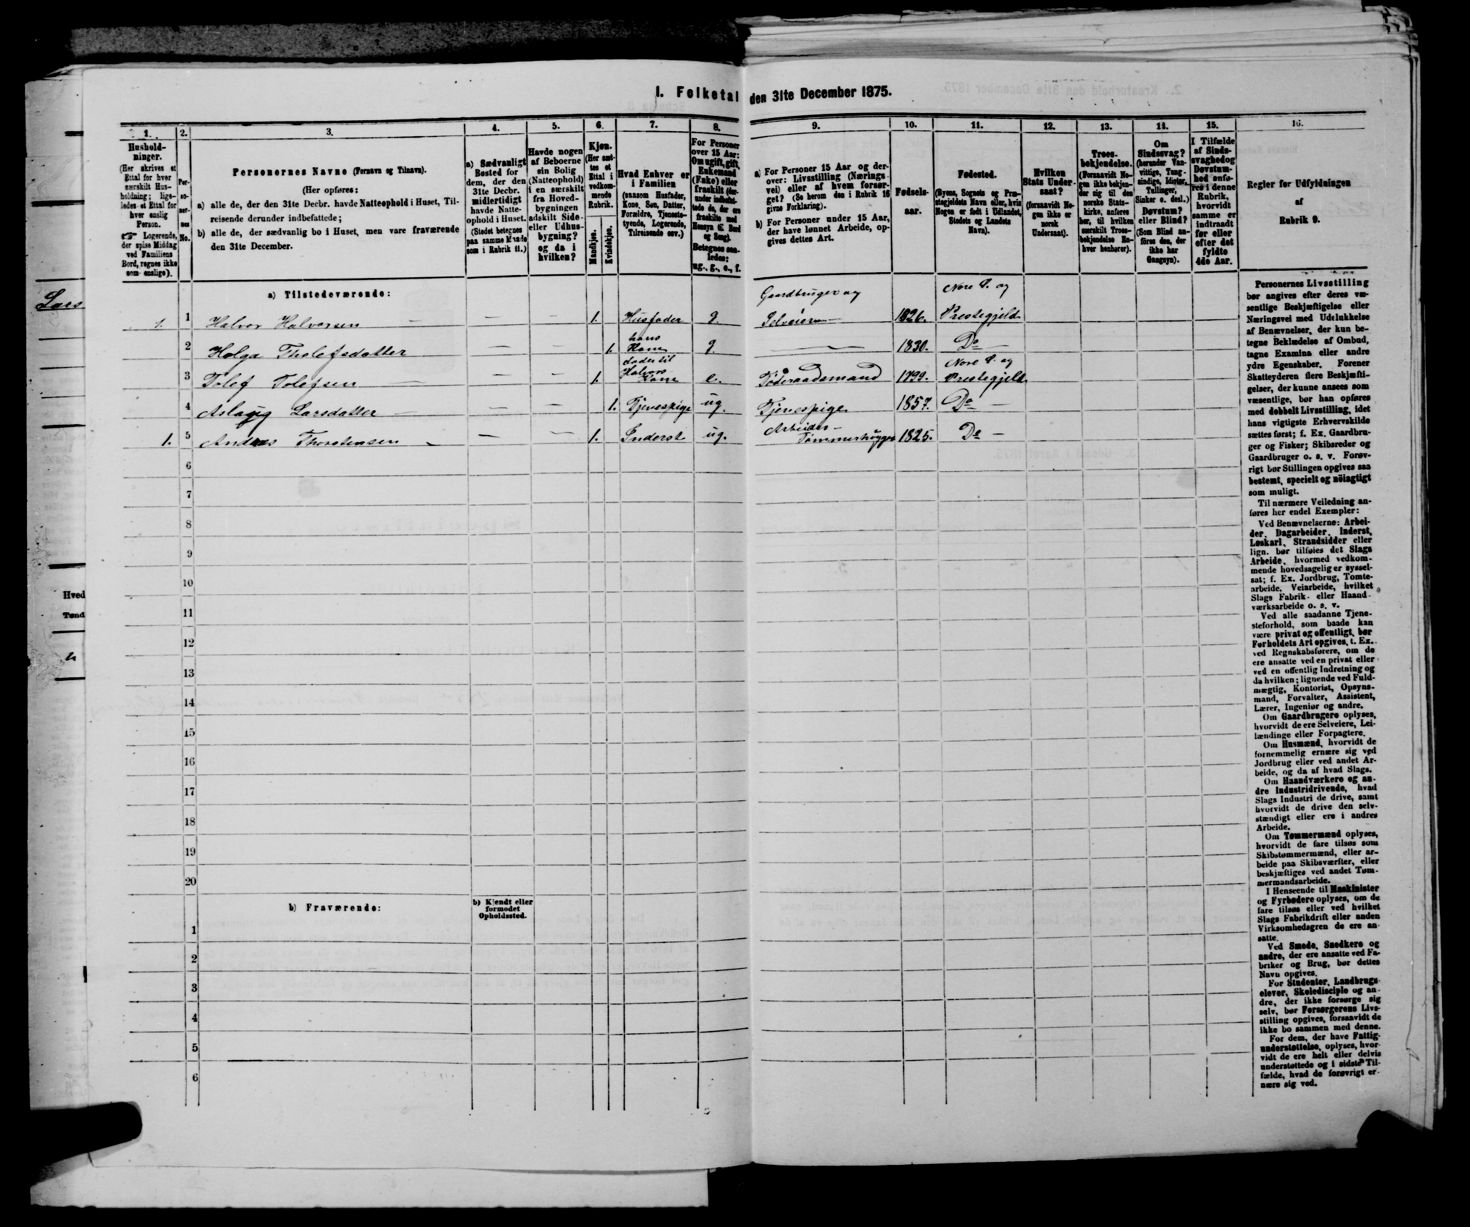 I. Folketal den 31te December 1875.
1.
2.
3.
4.
5.
6.
7.
8.
9.
10.
11.
12.
13.
14.
15.
16.
Hushold-
ninger.
(Her skrives et
Ettal for hver
særskilt Hus-
holdning; lige-
ledes et Ettal for
hver enslig
Person.
Logerende,
der spise Middag
ved Familiens
Bord, regnes ikke
som enslige).
Per-
so-
ner-
nes
No.
Personernes Navne (Fornavn og Tilnavn).
(Her opføres:
a) alle de, der den 31te Decbr. havde Natteophold i Huset, Til-
reisende derunder indbefattede;
b) alle de, der sædvanlig bo i Huset, men vare fraværende
den 31te December.
a) Sædvanligt
Bosted for
dem, der den
31te Decbr.
midlertidigt
havde Natte-
ophold i Huset.
(Stedet betegnes
paa samme Maade
som i Rubrik 11.)
Havde nogen
af Beboerne
sin Bolig
(Natteophold)
i en særskilt
fra Hoved-
bygningen
adskilt Side-
eller Udhus-
bygning?
og da i
hvilken?
Kjøn.
(Her sæt-
tes et
Ettal i
vedkom-
mende
Rubrik.
Mandkjøn.
Kvindekjøn.
Hvad Enhver er
i Familien
(saasom Husfader,
Kone, Søn, Datter,
Forældre, Tjeneste-
tyende, Logerende,
Tilreisende osv.)
For Personer
over 15 Aar:
Om ugift, gift,
Enkemand
(Enke) eller
fraskilt
Betegnes saa-
ledes:
ug., g., e., f.
a) For Personer 15 Aar og der-
over: Livsstilling (Nærings-
vei) eller af hvem forsør-
get? (Se herom den i Rubrik 16
givne Forklaring).
b) For Personer under 15 Aar,
der have lønnet Arbeide, op-
gives dettes Art.
Fødsels-
aar.
Fødested.
(Byens, Sognets og Præ-
stegjeldets Navn eller, hvis
Nogen er født i Udlandet,
Stedets og Landets
Navn).
Hvilken
Stats Under-
saat?
(forsaavidt No-
gen ikke er
norsk
Undersaat).
Troes-
bekjendelse.
(Forsaavidt No-
gen ikke bekjen-
der sig til den
norske Stats-
kirke, anføres
her, til hvilken
særskilt Troes-
bekjendelse En-
hver henhører).
Om
Sindssvag?
(herunder Van-
vittige, Tung-
sindige, Idioter,
Tullinger,
Sinker o. desl.)
Døvstum?
eller Blind?
(Som Blind an-
føres den, der
ikke har
Gangsyn).
I Tilfælde
af Sinds-
svaghed og
Døvstum-
hed anfø-
res i denne
Rubrik,
hvorvidt
samme er
indtraadt
før eller
efter det
fyldte
4de Aar.
Regler for Udfyldningen
af
Rubrik 9.
a) Tilstedeværende:
1. 1 Halvor Halvorsen — — — 1. Husfader g. Gaardbruger og Selveier 1826. Nore S. og Prestegjeld
2 Helga Tholefsdatter — — 1. hans Kone g. — 1830. Do —
3 Tolef Tolefsen — — 1. Fader til Halvors Kone e. Føderaadsmand 1799. Nore S. og Prestegjeld
4 Aslaug Larsdatter — — 1. Tjenespige ug. Tjenespige 1857. Do —
1. 5 Andres Thorstensen — — 1. Inderst ug. Arbeider — Tømmerhugger 1825. Do —
6
7
8
9
10
11
12
13
14
15
16
17
18
19
20
b) Fraværende:
b) Kjendt eller
formodet
Opholdssted.
1
2
3
4
5
6
Personernes Livsstilling
bør angives efter deres væ-
sentlige Beskjæftigelse eller
Næringsvei med Udelukkelse
af Benævnelser, der kun be-
tegne Beklædelse af Ombud,
tagne Examina eller andre
ydre Egenskaber. Forener
Skatteyderen flere Beskjæfti-
gelser, der kunne ansees som
væsentlige, bør han opføres
med dobbelt Livsstilling, idet
hans vigtigste Erhvervskilde
sættes først; f. Ex. Gaardbru-
ger og Fisker; Skibsreder og
Gaardbruger o. s. v. Forøv-
rigt bør Stillingen opgives saa
bestemt, specielt og nöiagtigt
som muligt.
Til nærmere Veiledning an-
føres her endel Exempler:
Ved Benævnelserne: Arbei-
der, Dagarbeider, Inderst,
Løskarl, Strandsidder eller
lign. bør tilføies det Slags
Arbeide, hvormed vedkom-
mende hovedsagelig er syssel-
sat; f. Ex. Jordbrug, Tomte-
arbeide, Veiarbeide, hvilket
Slags Fabrik- eller Haand-
værksarbeide o. s. v.
Ved alle saadanne Tjene-
steforhold, som baade kan
være privat og offentligt, bør
Forholdets Art opgives, t. Ex.
ved Regnskabsførere, om de
ere ansatte ved en privat eller
ved en offentlig Indretning og
da hvilken; lignende ved Fuld-
mægtig, Kontorist, Opsyns-
mand, Forvalter, Assistent,
Lærer, Ingeniør og andre.
Om Gaardbrugere oplyses,
hvorvidt de ere Selveiere, Lei-
lændinge eller Forpagtere.
Om Husmænd, hvorvidt de
fornemmelig ernære sig ved
Jordbrug eller ved andet Ar-
beide, og da af hvad Slags.
Om Haandværkere og an-
dre Industridrivende, hvad
Slags Industri de drive, samt
hvorvidt de drive den selv-
stændigt eller ere i andres
Arbeide.
Om Tømmermænd oplyses,
hvorvidt de fare tilsøs som
Skibstømmermænd, eller ar-
beide paa Skibsværfter, eller
beskjæftiges ved andet Tøm-
mermandsarbeide.
I Henseende til Maskinister
og Fyrbødere oplyses, om de
fare tilsøs eller ved hvilket
Slags Fabrikdrift eller anden
Virksomhedsgren de ere an-
satte.
Ved Smede, Snedkere og
andre, der ere ansatte ved Fa-
briker og Brug, bør dettes
Navn opgives.
For Studenter, Landbrugs-
elever, Skoledisciple og an-
dre, der ikke forsørge sig
selv, bør Forsørgerens Livs-
stilling opgives, forsaavidt de
ikke bo sammen med denne.
For dem, der have Fattig-
understøttelse, oplyses, hvor-
vidt de ere helt eller delvis
understøttede og i sidste Til-
fælde, hvad de forøvrigt er-
nære sig ved.
Lars
Hved
Tønd